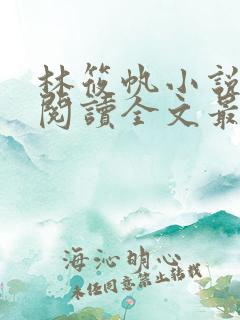 林筱帆小說
閱讀全文最
海沁明心
未經同意禁止轉載